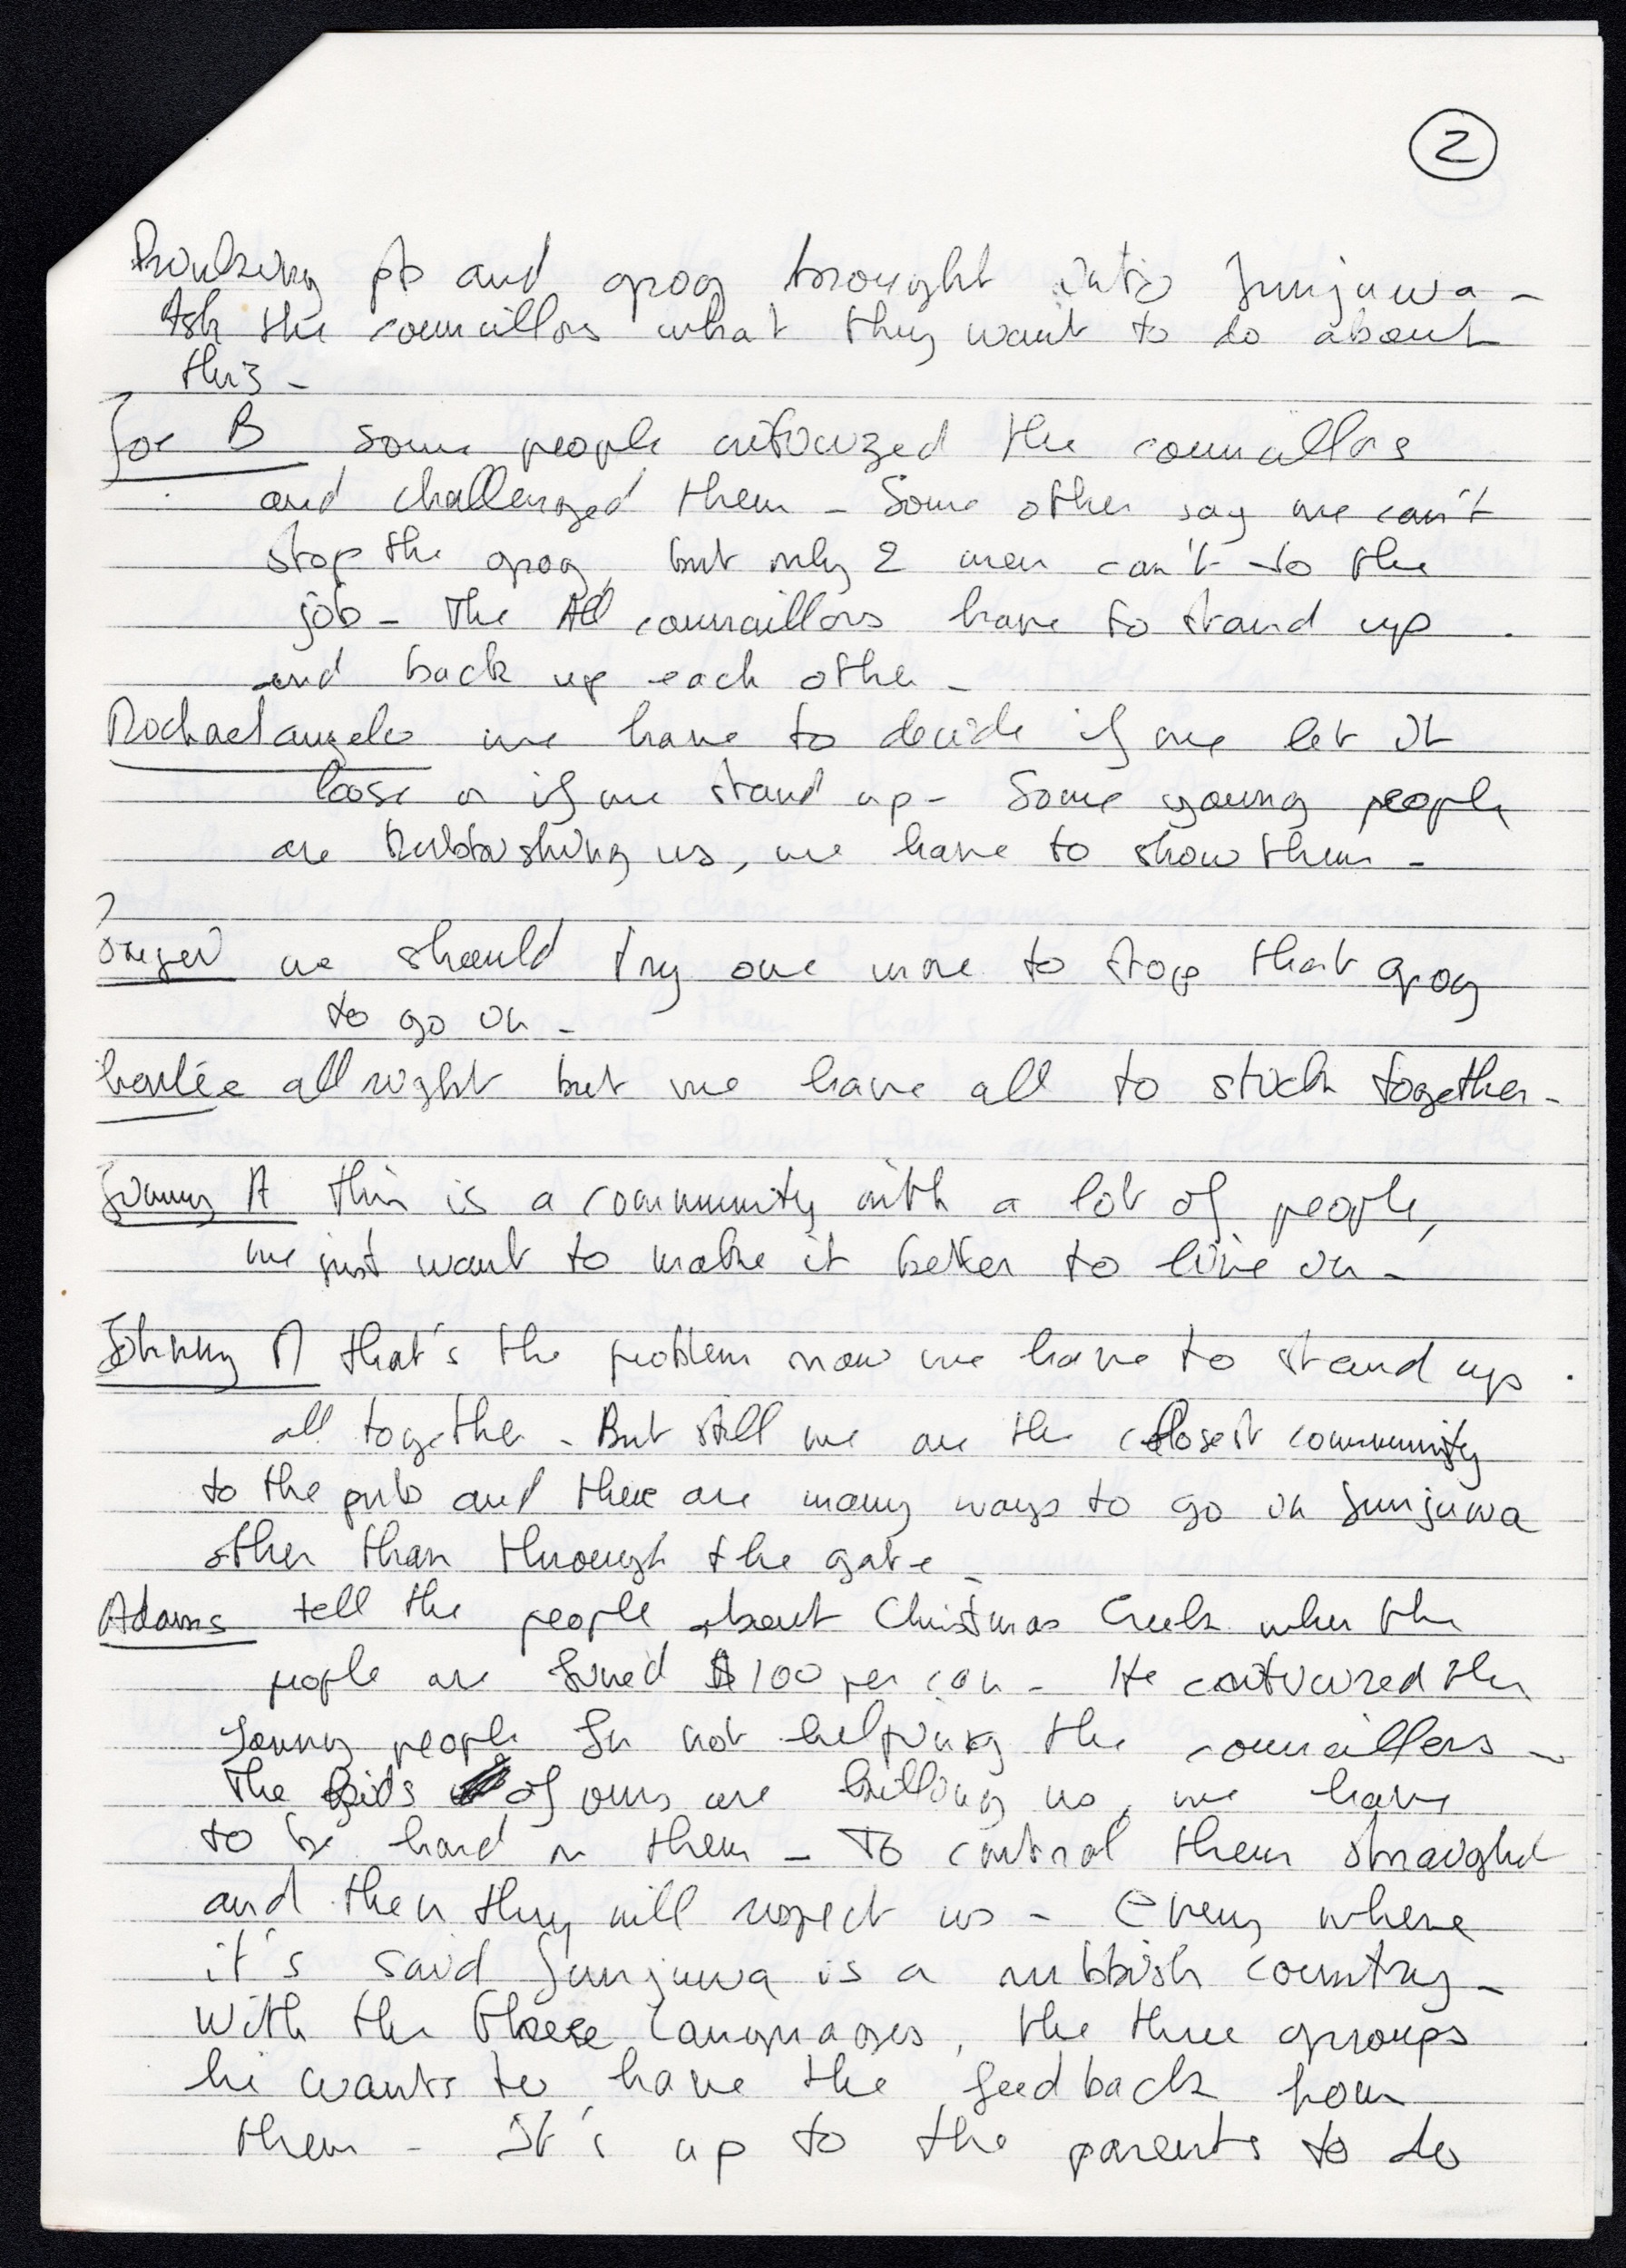 2
Drinking pb and grog brought into Junjuwa -
Ask the councillors what they want to do about
this -
Joe B some people criticized the councillors
and challenged them - Some other say we can't
stop the grog, but only 2 men can't do the
job - The All councillors have to stand up
and back up each other -
we have to decide if we let it
loose or if we stand up - Some young people
are Rubbishing us, we have to show them -
?
we should try one more to stop that grog
to go on -
all right but we have all to stick together -
Jimmy A this is a community with a lot of people,
we just want to make it better to live in -
Johnny M that's the problem now we have to stand up
all together - But still we are the closest community
to the pub and there are many ways to go in Junjuwa
other than through the gate -
Adams tell the people about Christmas Creek when the
people are fined $100 per can - He criticized the
young people for not helping the councillors -
The kids of ours are killing us, we have
to be hard on them - To control them straight
and then they will respect us - Every where
it's said Junjuwa is a rubbish country -
With the three languages, the three groups
he wants to have the feedback from
them - It's up to the parents to do